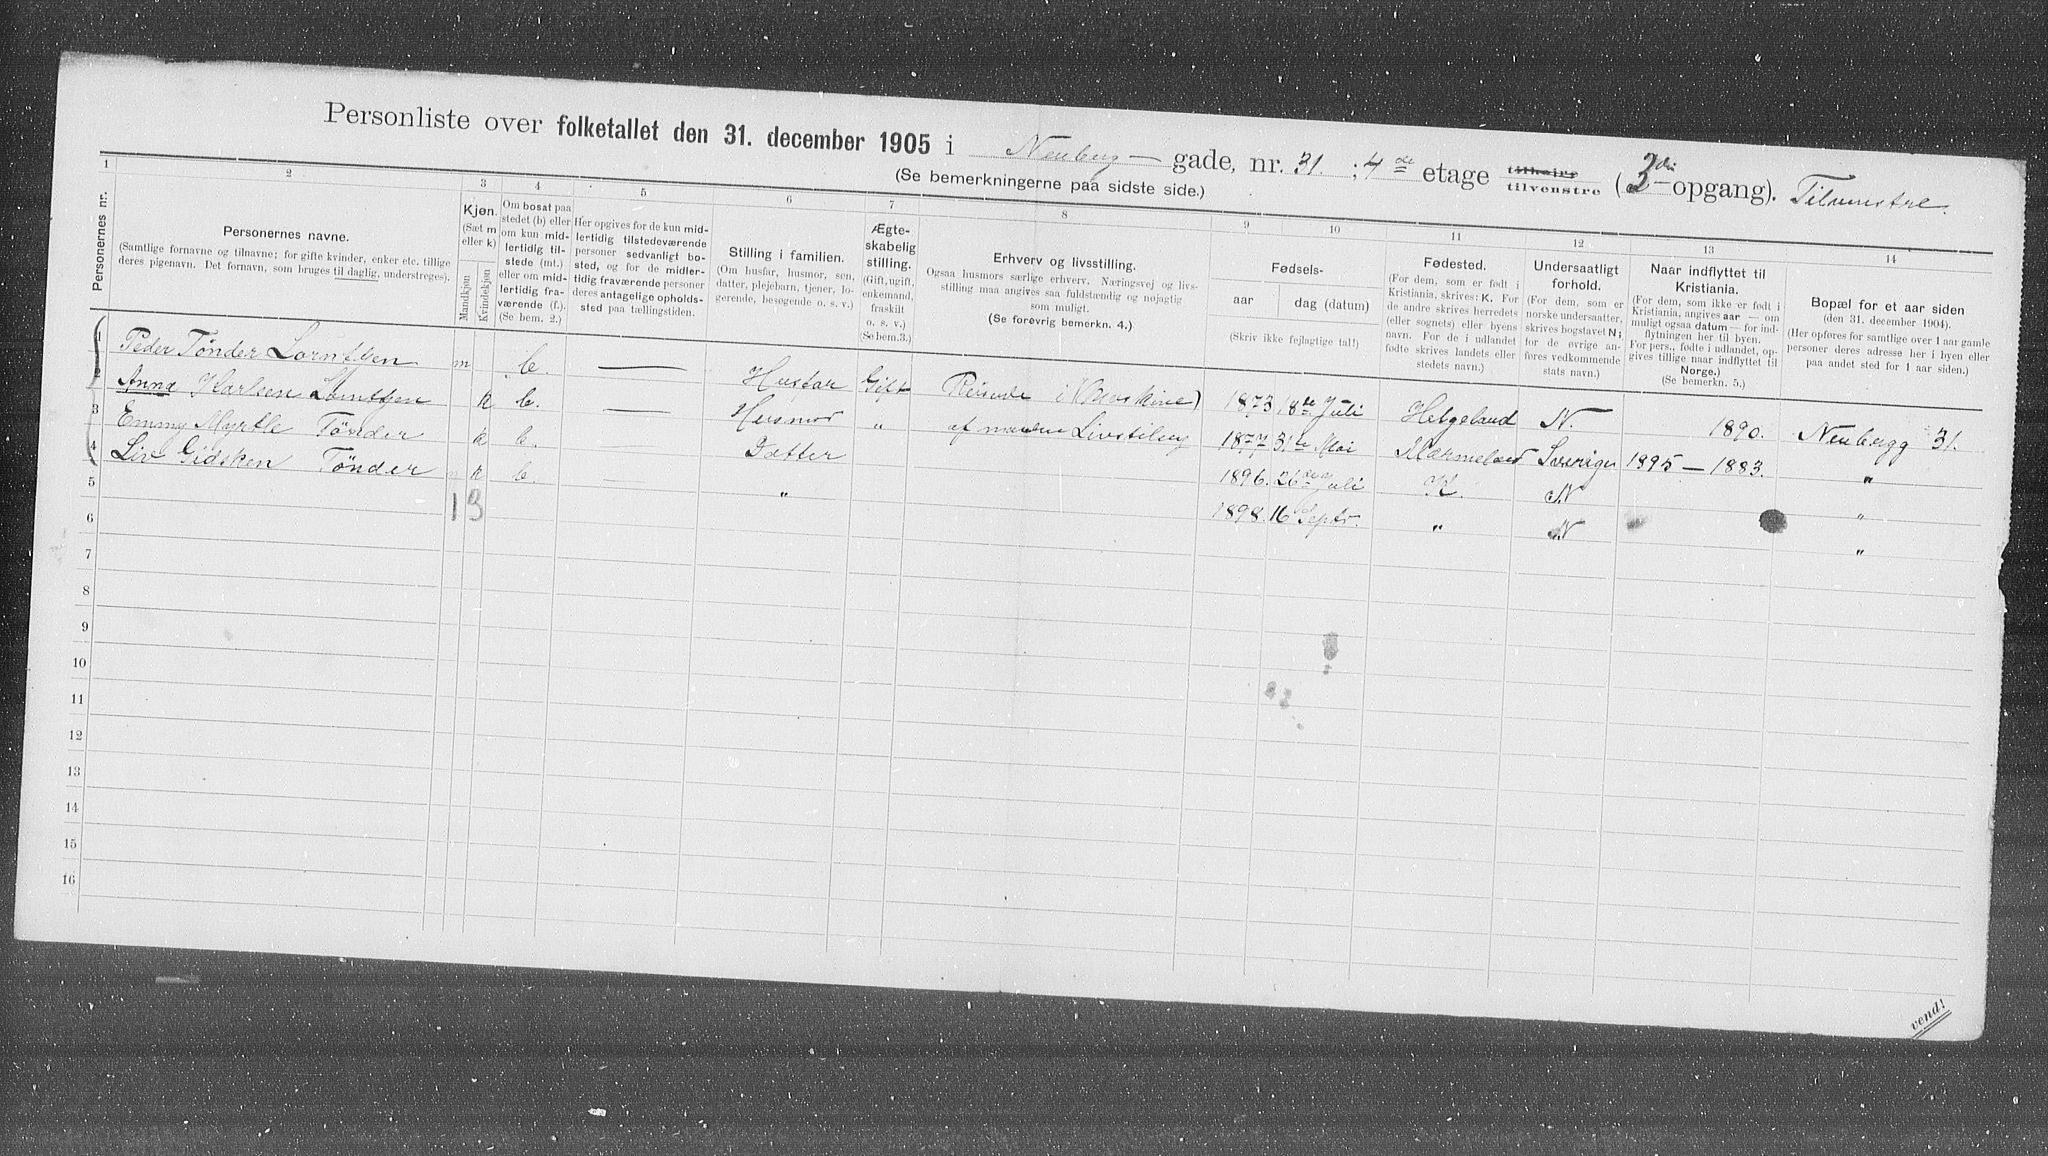 Personliste over folketallet den 31. december 1905 i Neuberg- gade, nr. 31. ; 4de etage tilhøire tilvenstre ( 3die -opgang). Tilvenstre.
(Se bemerkningerne paa sidste side.)
1 2 3 4 5 6 7 8 9 10 11 12 13 14
Personernes nr.
Personernes navne.
(Samtlige fornavne og tilnavne; for gifte kvinder, enker etc. tillige
deres pigenavn. Det fornavn, som bruges til daglig, understreges).
Kjøn.
(Sæt m
eller k)
Mandkjøn
Kvindekjøn
Om bosat paa
stedet (b) eller
om kun mid-
lertidig til-
stede (mt.)
eller om mid-
lertidig fra-
værende (f.).
(Se bem. 2.)
Her opgives for de kun mid-
lertidig tilstedeværende
personer sedvanligt bo-
sted, og for de midler-
tidig fraværende personer
deres antagelige opholds-
sted paa tællingstiden.
Stilling i familien.
(Om husfar, husmor, søn,
datter, plejebarn, tjener, lo-
gerende, besøgende o. s. v.)
Ægte-
skabelig
stilling.
(Gift, ugift,
enkemand,
fraskilt
o. s. v.)
(Se bem.3.)
Erhverv og livsstilling.
Ogsaa husmors særlige erhverv. Næringsvej og livs-
stilling maa angives saa fuldstændig og nøjagtig
som muligt.
(Se forøvrig bemerkn. 4.)
Fødsels-
aar
dag (datum)
(Skriv ikke fejlagtige tal!)
Fødested.
(For dem, som er født i
Kristiania, skrives: K. For
de andre skrives herredets
(eller sognets) eller byens
navn. For de i udlandet
fødte skrives landets eller
stedets navn.)
Undersaatligt
forhold.
(For dem, som er
norske undersaatter,
skrives bogstavet N;
for de øvrige an-
føres vedkommende
stats navn.)
Naar indflyttet til
Kristiania.
(For dem, som ikke er født i
Kristiania, angives aar — om
muligt ogsaa datum — for ind-
flytningen her til byen.
For pers., fødte i udlandet, op-
gives tillige naar indflyttet til
Norge.)
(Se bemerkn. 5.)
Bopæl for et aar siden
(den 31. december 1904).
(Her opføres for samtlige over 1 aar gamle
personer deres adresse her i byen eller
paa andet sted for 1 aar siden.)
1 Peder Tønder Lorntzen m b. — Husfar Gift Reisende i (Maskiner) 1873 18de Juli Helgeland N. 1890. Neubergg 31.
2 Anna Karlsen Lorntzen k b. — Husmor " af mandens Livstiling 1877 31te Mai Værmeland Sverige 1895 — 1883. "
3 Emmy Myrtle Tønder k b. Datter 1896. 26de Juli K. N "
4 Liv Gidsken Tønder k b. — " 1898. 16 Septr. " N "
5
1 3
6
7
8
9
10
11
12
13
14
15
16
vend!